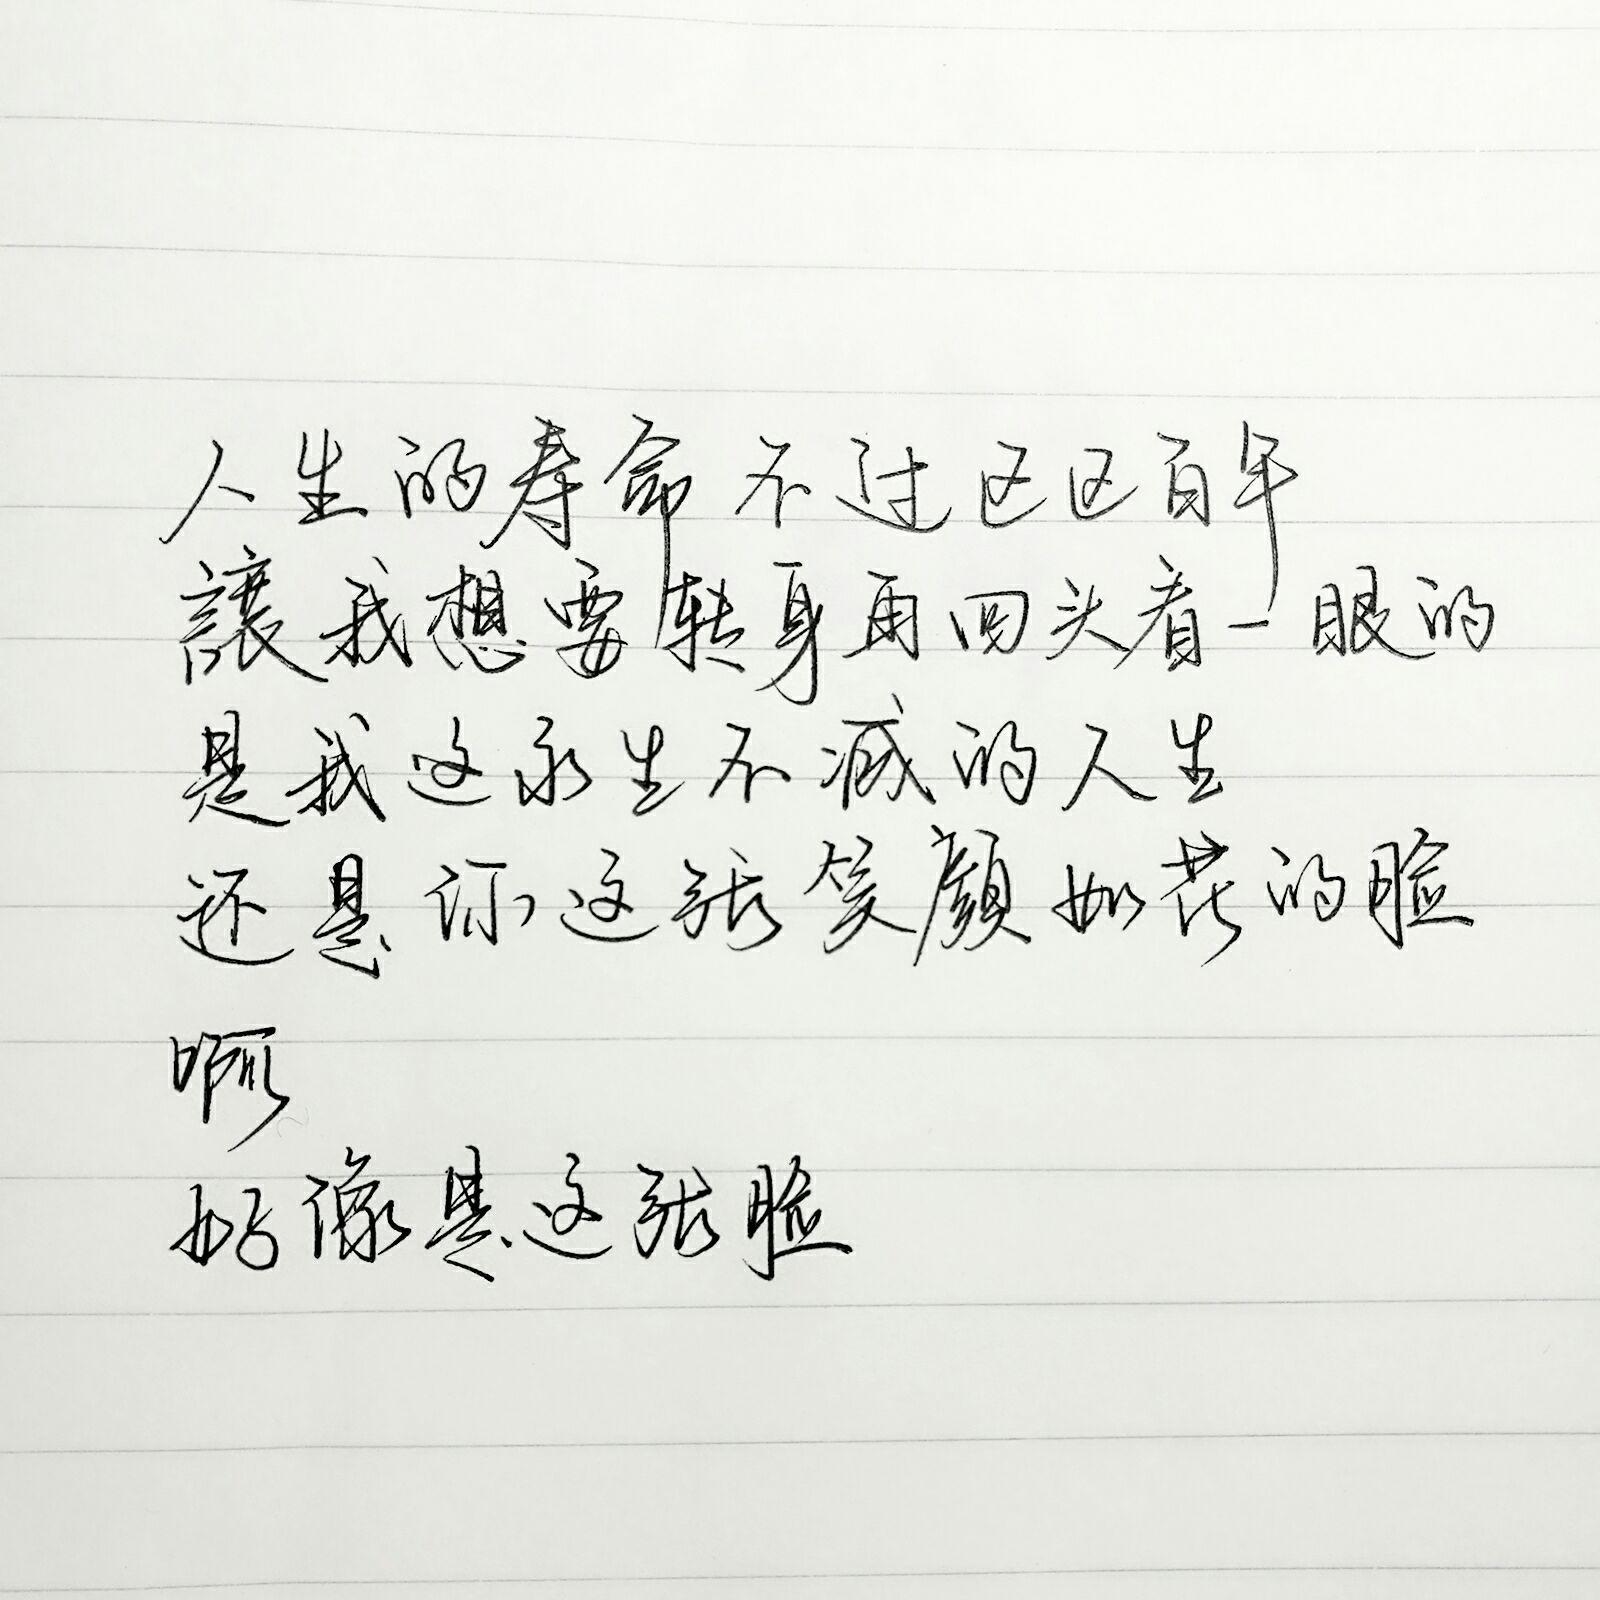 人生的寿命不过区区百年
讓我想要转身再回头看一眼的
是我这永生不减的人生
还是你这张笑顔如花的脸
啊
好像是这张脸